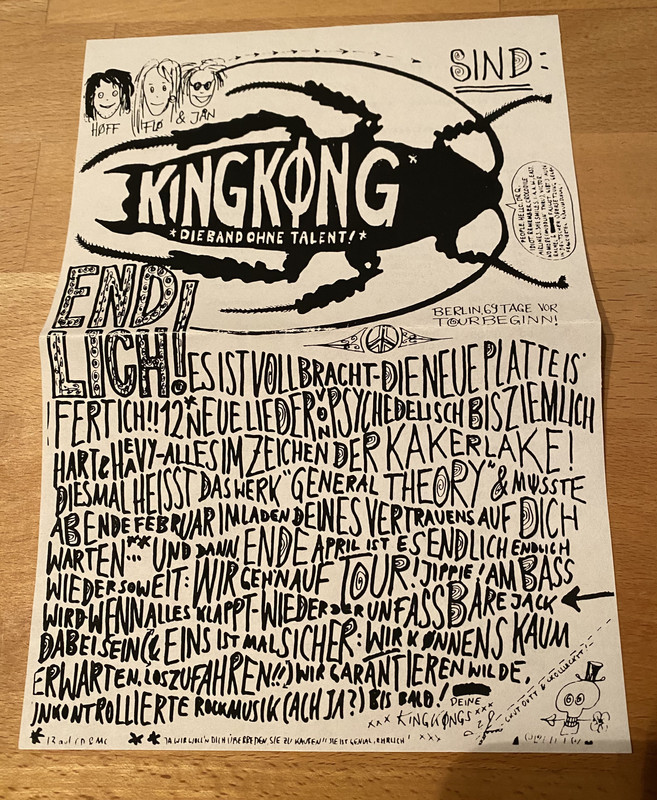 SIND:
HØFF
FLØ
& JAN
KINGKØNG*
*DIE BAND OHNE TALENT!*
BERLIN, 69 TAGE VOR
TOURBEGINN!
ENDLICH! ES IST VOLLBRACHT-DIE NEUE PLATTE IS'
FERTICH!! 12* NEUE LIEDER VON PSYCHEDELISCH BIS ZIEMLICH
HART & HEAVY-ALLES IM ZEICHEN DER KAKERLAKE!
DIESMAL HEISST DAS WERK "GENERAL THEORY" & MÜSSTE
AB ENDE FEBRUAR IM LADEN DEINES VERTRAUENS AUF DICH
WARTEN...** UND DANN, ENDE APRIL IST ES ENDLICH ENDLICH
WIEDER SOWEIT: WIR GEH'N AUF TOUR! JIPPIE! AM BASS
WIRD-WENN ALLES KLAPPT-WIEDER DER UNFASSBARE JACK
DABEI SEIN (& EINS IST MAL SICHER: WIR KØNNENS KAUM
ERWARTEN, LOSZUFAHREN!!) WIR GARANTIEREN WILDE,
UNKONTROLLIERTE ROCKMUSIK (ACH JA?) BIS BALD!
DEINE
XXX KINGKØNGS XXX
** JA WIR WOLL'N DICH ÜBERREDEN SIE ZU KAUFEN!! SIE IST GENIAL, EHRLICH!